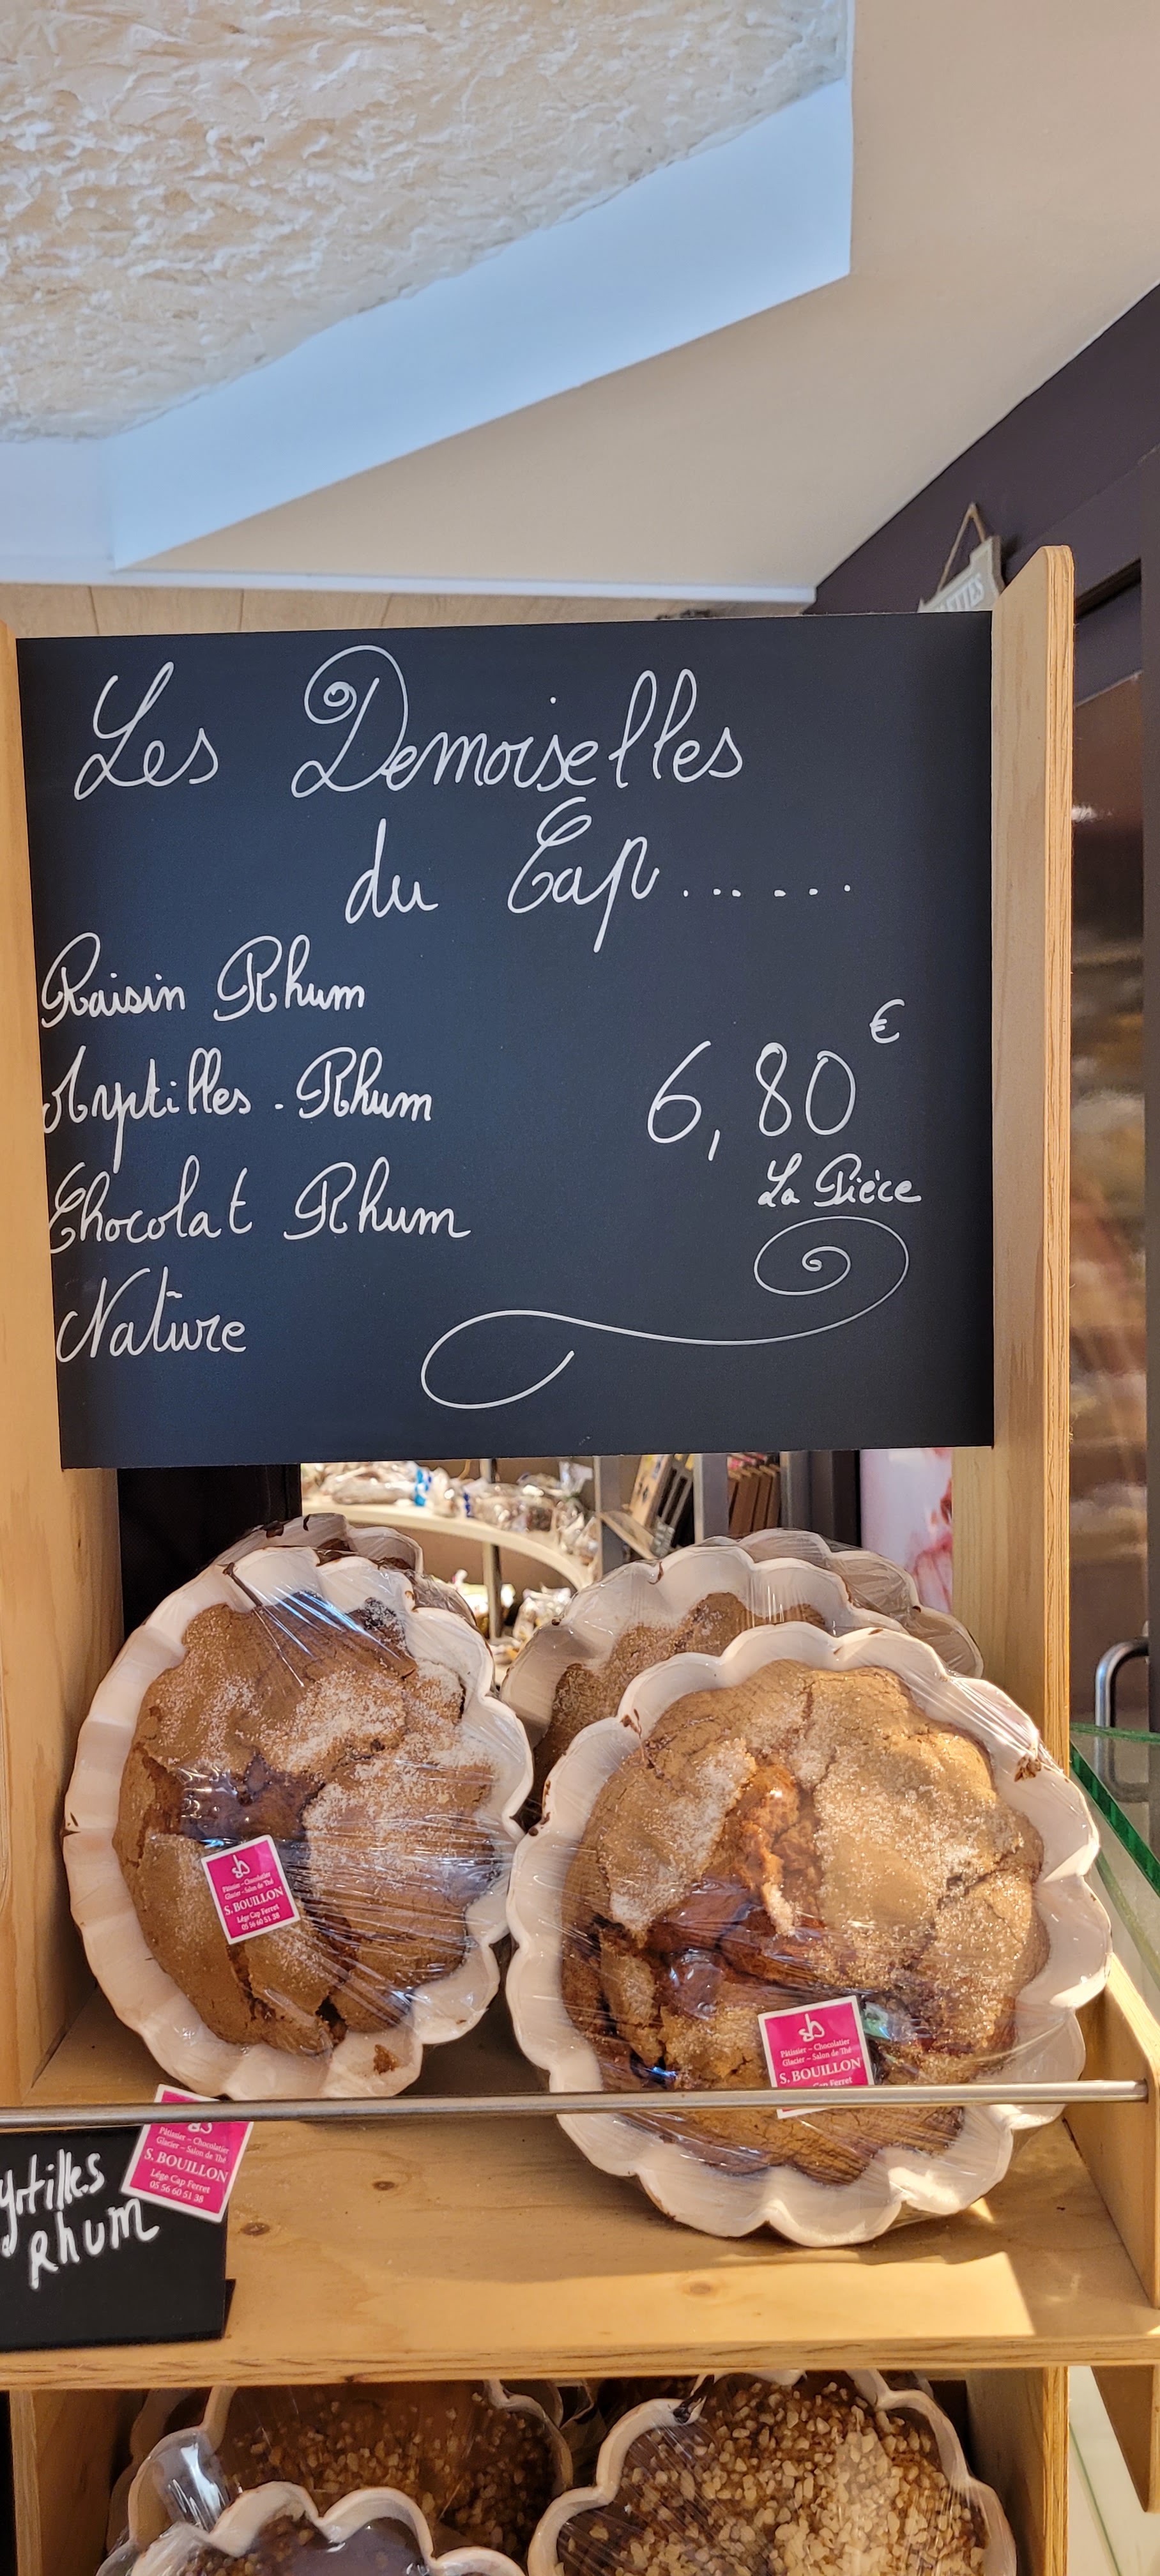 Les Demoiselles
du Cap......
Raisin Rhum
Myrtilles - Rhum
Chocolat Rhum
Nature
6,80 €
La Pièce
sb
Pâtissier - Chocolatier
Glacier - Salon de Thé
S. BOUILLON
Lège Cap Ferret
05 56 60 51 38
sb
Pâtissier - Chocolatier
Glacier - Salon de Thé
S. BOUILLON
Cap Ferret
Pâtissier - Chocolatier
Glacier - Salon de Thé
S. BOUILLON
Lège Cap Ferret
05 56 60 51 38
yrtilles
Rhum